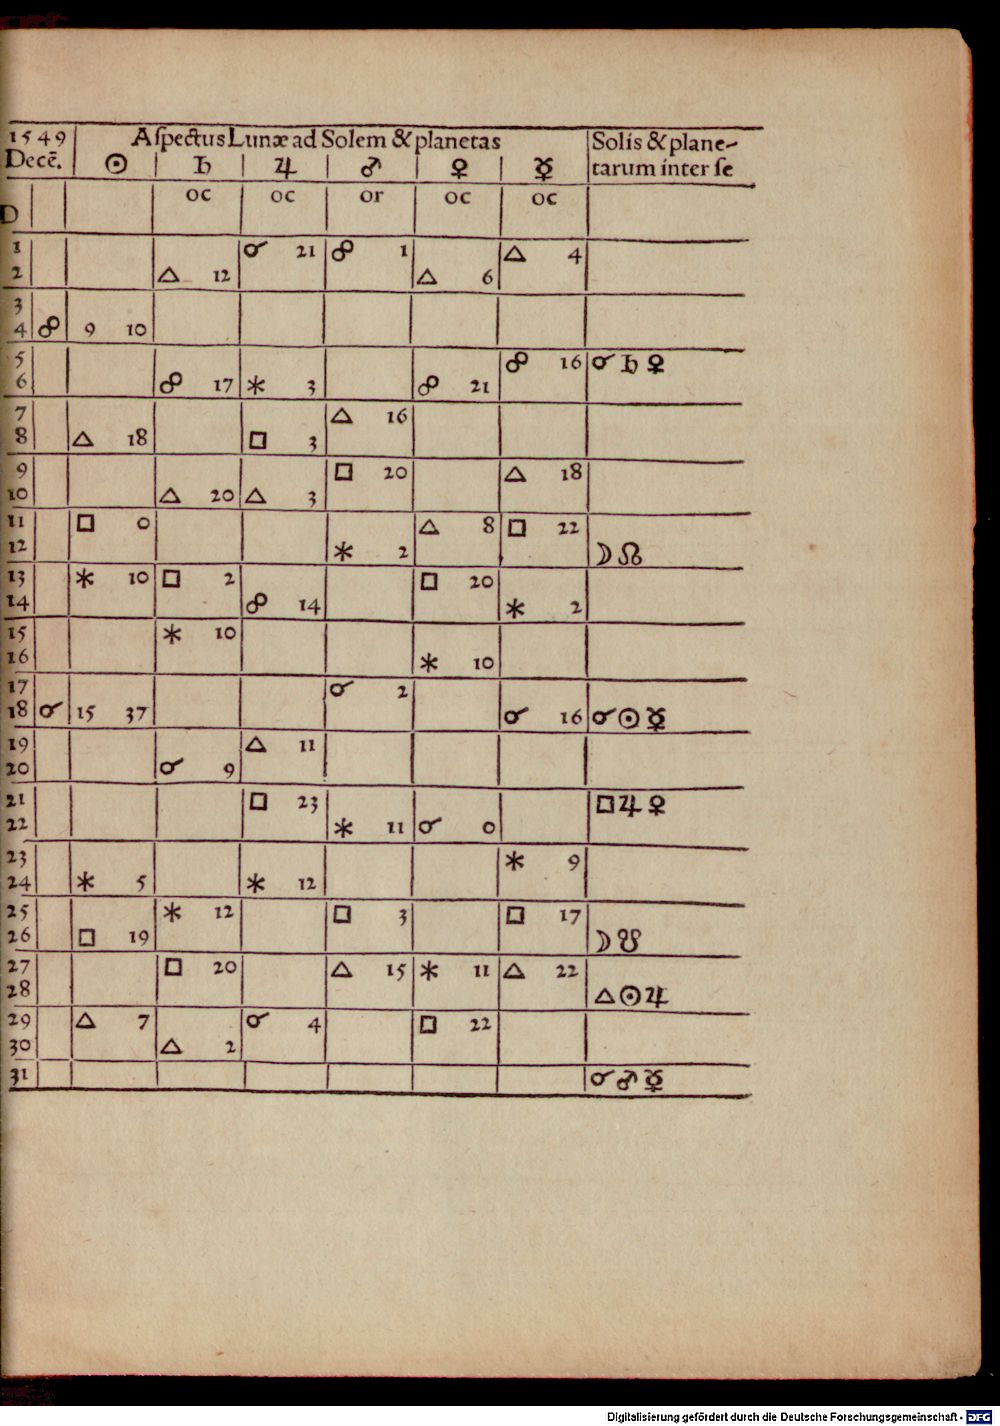 1549 Aſpectus Lunæ ad Solem & planetas Solis & plane-
Decē. ☉ ♄ ♃ ♂ ♀ ☿ tarum inter ſe
D oc oc or oc oc
1 ☌ 21 ☍ 1 △ 4
2 △ 12 △ 6
3
4 ☍ 9 10
5 ☍ 16 ☌ ♄ ♀
6 ☍ 17 ⚹ 3 ☍ 21
7 △ 16
8 △ 18 □ 3
9 □ 20 △ 18
10 △ 20 △ 3
11 □ 0 △ 8 □ 22
12 ⚹ 2 ☽ ☊
13 ⚹ 10 □ 2 □ 20
14 ☍ 14 ⚹ 2
15 ⚹ 10
16 ⚹ 10
17 ☌ 2
18 ☌ 15 37 ☌ 16 ☌ ☉ ☿
19 △ 11
20 ☌ 9
21 □ 23 □ ♃ ♀
22 ⚹ 11 ☌ 0
23 ⚹ 9
24 ⚹ 5 ⚹ 12
25 ⚹ 12 □ 3 □ 17
26 □ 19 ☽ ☋
27 □ 20 △ 15 ⚹ 11 △ 22
28 △ ☉ ♃
29 △ 7 ☌ 4 □ 22
30 △ 2
31 ☌ ♂ ☿
Digitalisierung gefördert durch die Deutsche Forschungsgemeinschaft - DFG